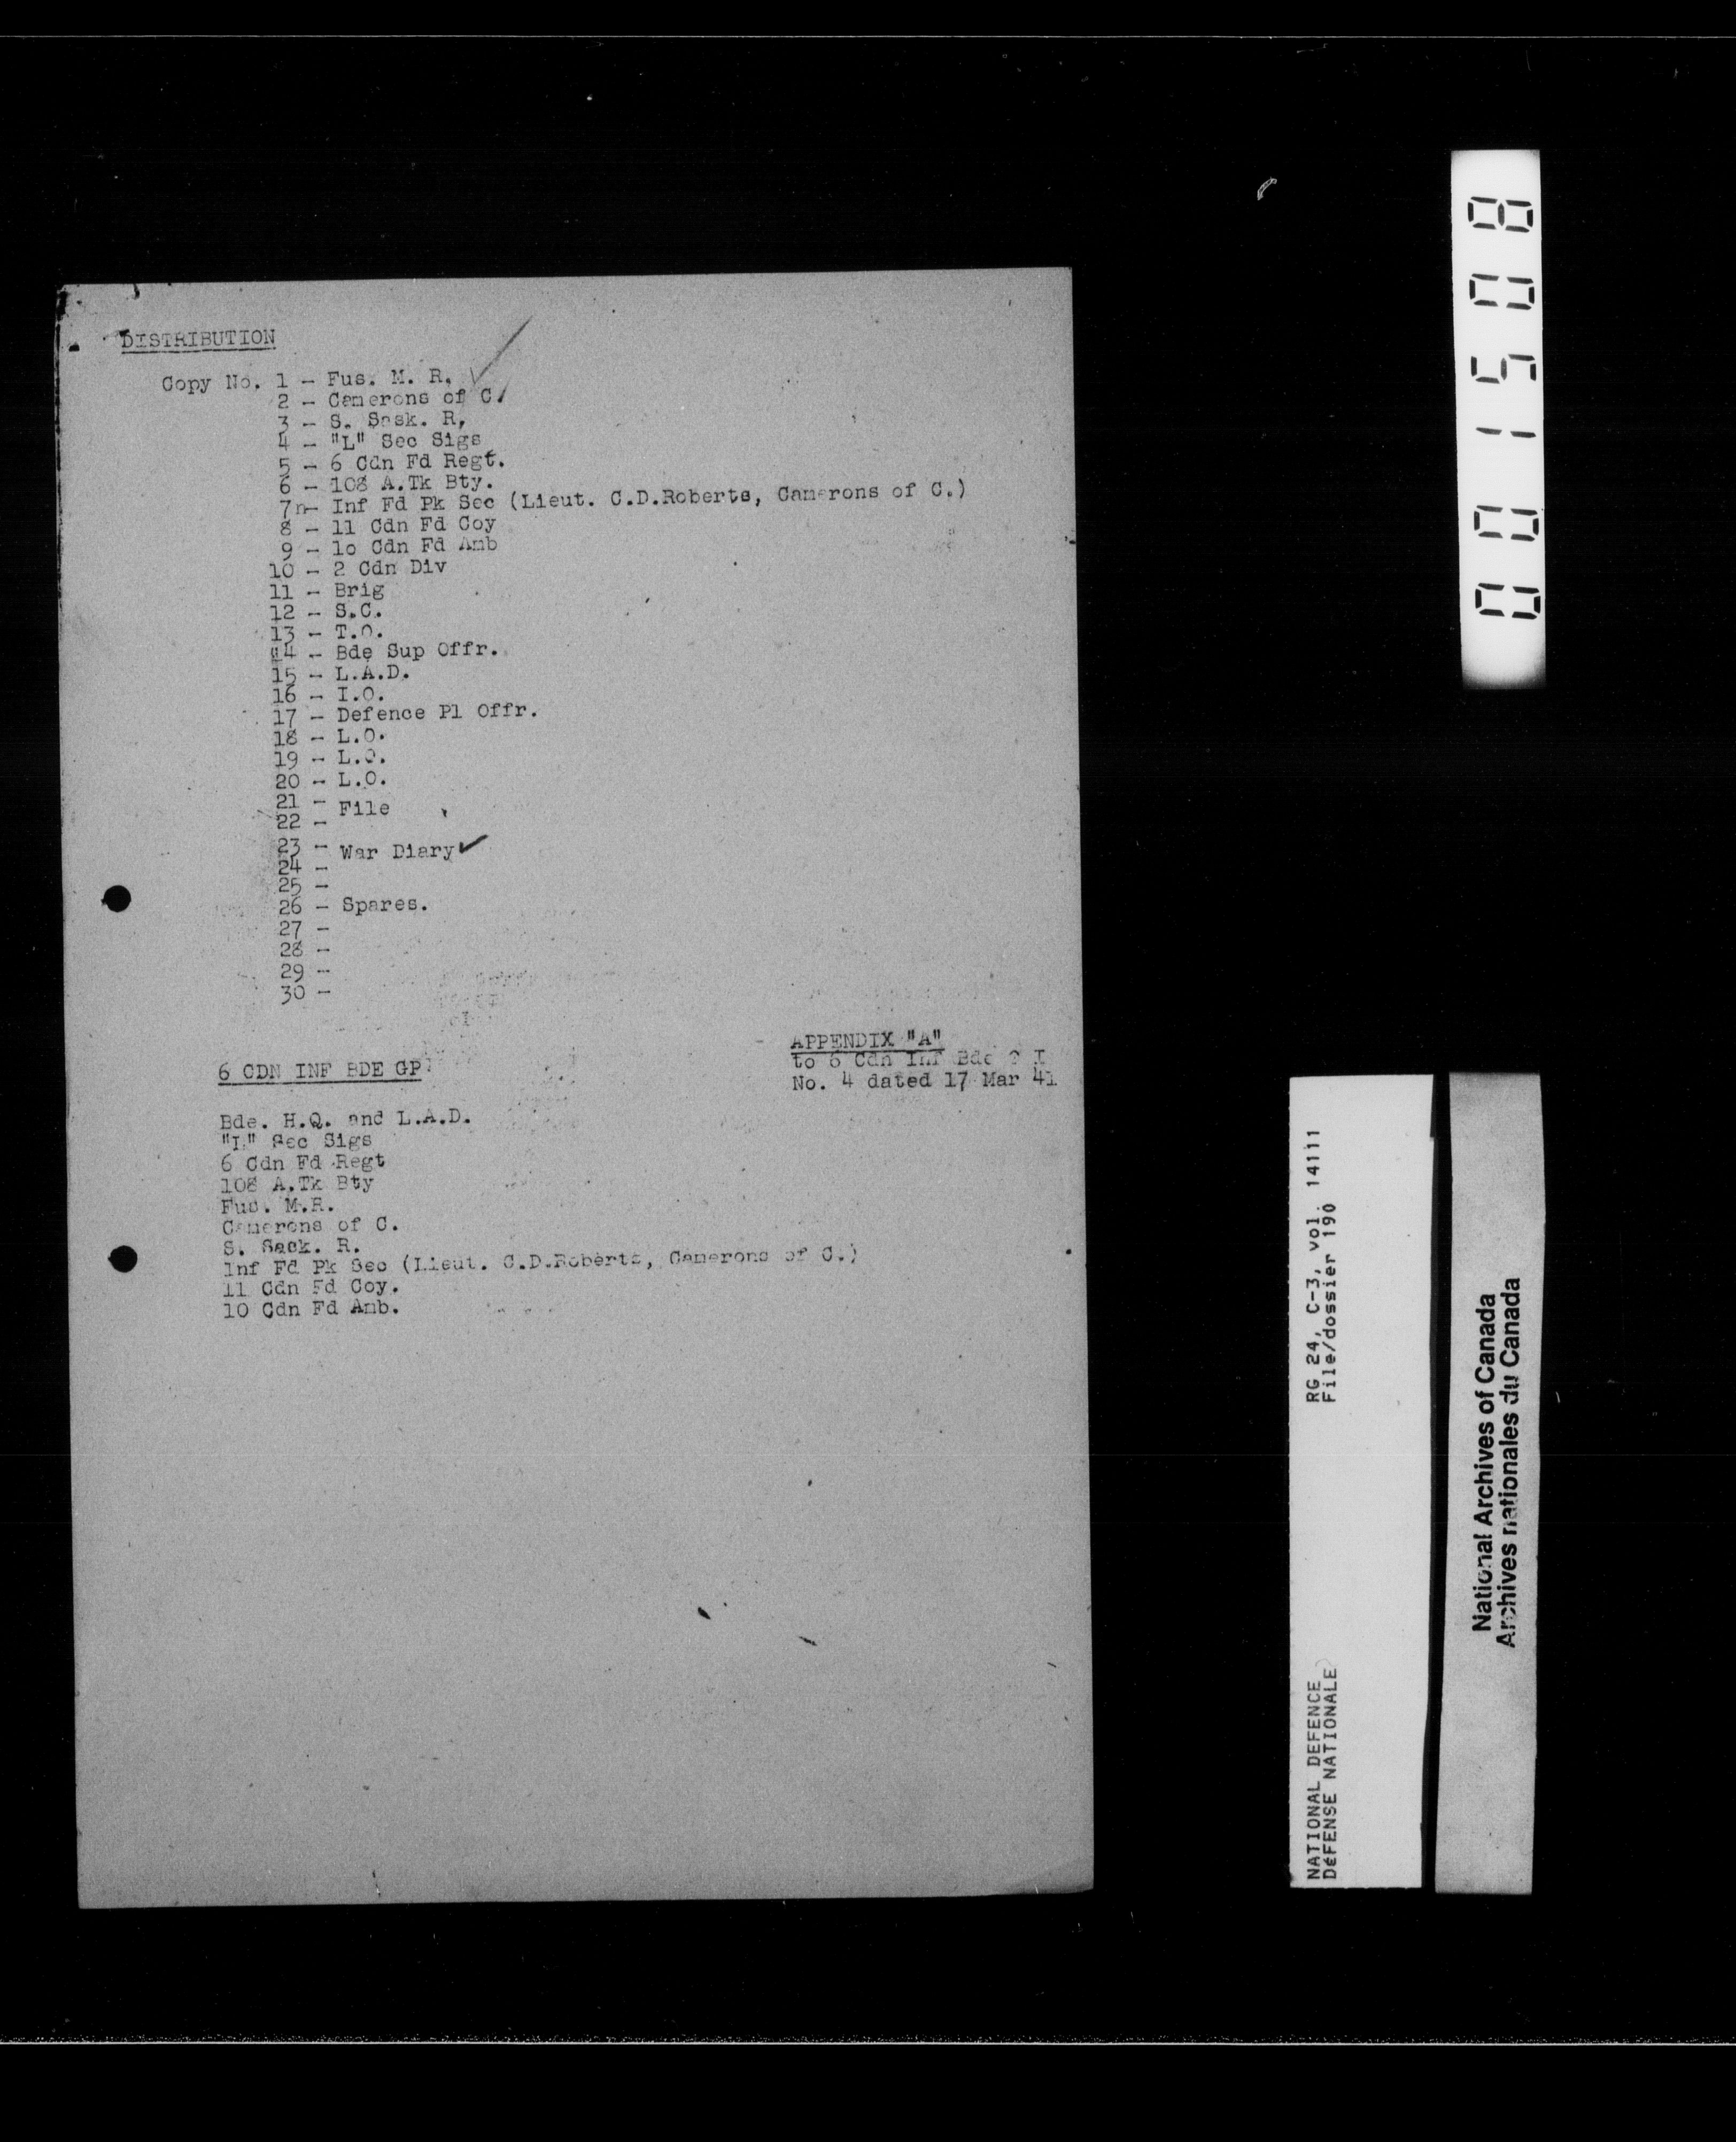 DISTRIBUTION
Copy No. 1 - Fus. M. R.
2 - Camerons of C.
3 - S. Sask. R.
4 - "L" Sec Sigs
5 - 6 Cdn Fd Regt.
6 - 108 A.Tk Bty.
7 - Inf Fd Pk Sec (Lieut. C.D.Roberts, Camerons of C.)
8 - 11 Cdn Fd Coy
9 - 1o Cdn Fd Amb
10 - 2 Cdn Div
11 - Brig
12 - S.C.
13 - T.O.
14 - Bde Sup Offr.
15 - L.A.D.
16 - I.O.
17 - Defence Pl Offr.
18 - L.O.
19 - L.O.
20 - L.O.
21 -
File
22 -
23 -
War Diary
24 -
25 -
26 - Spares.
27 -
28 -
29 -
30 -
APPENDIX "A"
to 6 Cdn Inf Bde
No. 4 dated 17 Mar 41
6 CDN INF BDE GP
Bde. H.Q. and L.A.D.
"L" Sec Sigs
6 Cdn Fd Regt
108 A.Tk Bty
Fus. M.R.
Camerons of C.
S. Sask. R.
Inf Fd Pk Sec (Lieut. C.D.Roberts, Camerons of C.)
11 Cdn Fd Coy.
10 Cdn Fd Amb.
001508
NATIONAL DEFENCE RG 24, C-3, vol. 14111
DéFENSE NATIONALE File/dossier 190
National Archives of Canada
Archives nationales du Canada